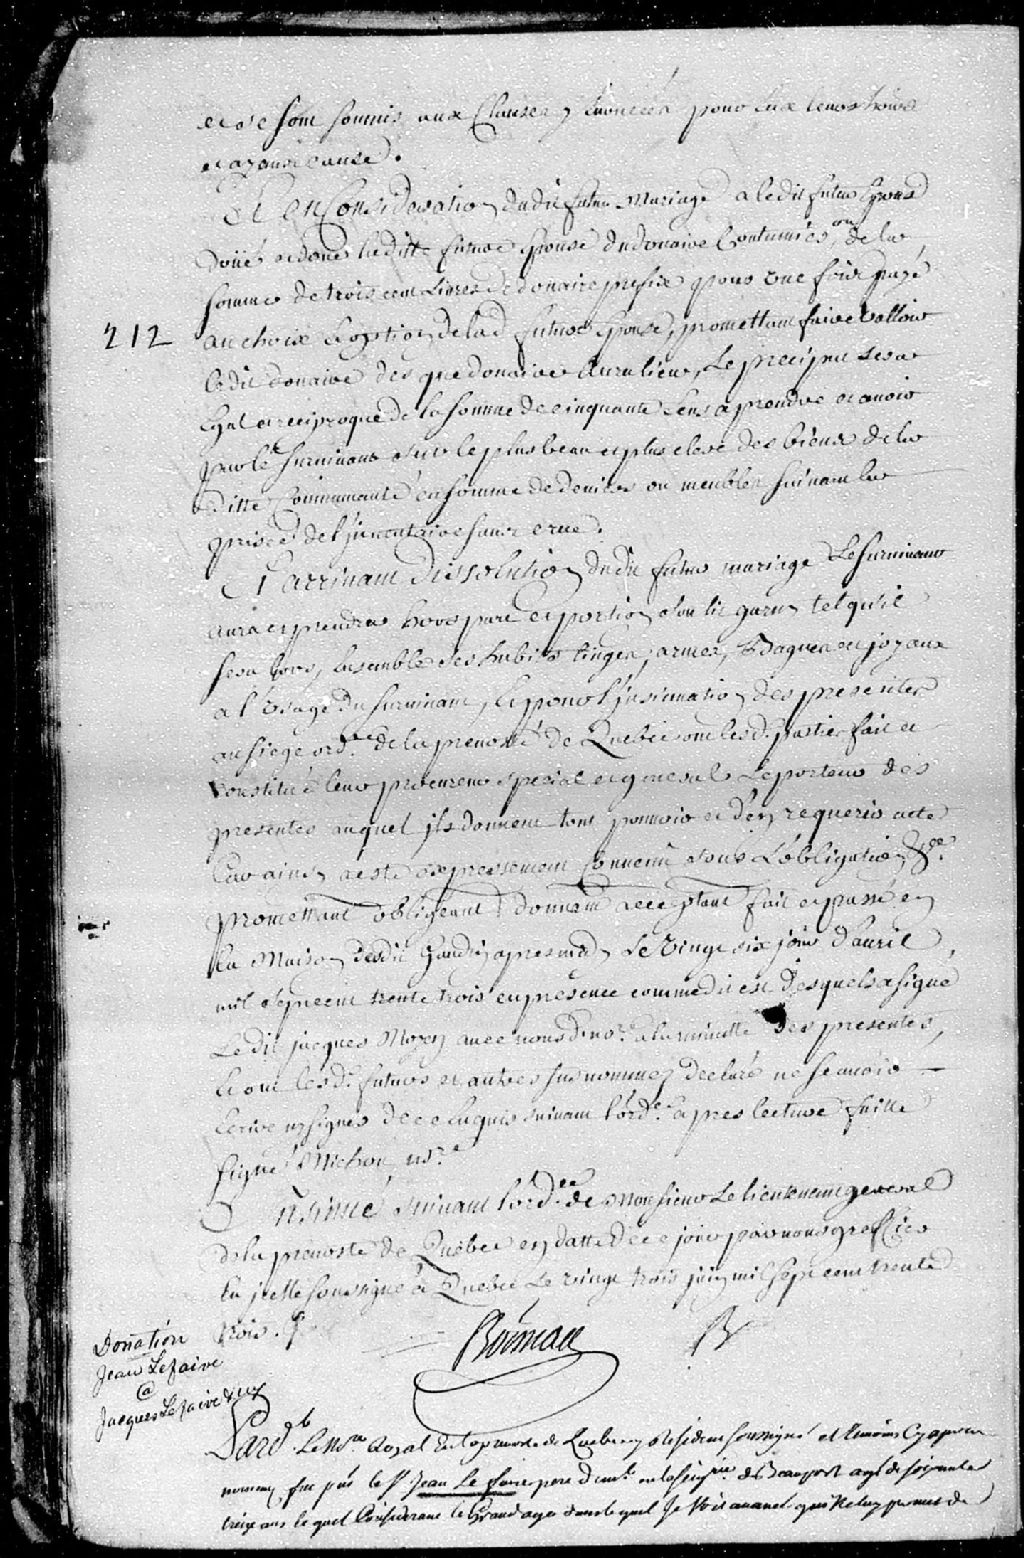 et se sont soumis aux Clauses y Enoncées pour Eux leurs hoirs
et ayans cause.
Et En Consideration dudit futur Mariage a ledit futur Epoux
doüé et doue laditte future Epouse du douaire Coutumier, ou de la
somme de trois cent Livres de douaire prefix pour une fois payé
212
au choix Et option de lad. future Epouse, promettant faire valloir
ledit douaire des que douaire aura lieu, Le preciput sera
Egal et reciproque de la somme de cinquante Livres a prendre et avoir
par le survivant sur le plus beau et plus clere des biens de la
ditte Communauté en somme de deniers ou meubles suivant la
prisée de l'inventaire sans crue.
Et arrivant dissolution dudit futur mariage Le survivant
aura et prendra hors part et portion son lit garny tel qu'il
sera lors, Ensemble ses habits linges, armes, Bagues et joyaux
a l'Usage du survivant, Et pour l'insinuation des presentes
au siege ordre. de la prevosté de Quebec ont lesd. parties fait et
constitué leur procureur special et general Le porteur des
presentes auquel ils donnent tout pouvoir et d'en requerir acte
Car ainsy a esté expressement Convenu sous L'obligation &ce.
promettant obligeant donnant acceptant fait et passé en
la Maison dudit apres midy Le vingt six jour d'auril
mil sept cent trente trois en presence comme dit est desquels a signé
Ledit jacques Moyen avec nousd. nore. a la minutte des presentes,
Et ont lesd. futurs et autres susnommez declaré ne sçavoir
Ecrire ny signer de ce Enquis suivant l'orde. apres lecture faitte
signé Michon nre.
Insinué suivant l'ordce. de Monsieur Le lieutenant general
de la prevosté de Quebec en datte de ce jour par nous greffier
En jcelle soussigné a Quebec Le vingt trois juin mil sept cent trente
trois.
Boisseau
Donation
Jean Lefaivre
a
Jacques Lefaivre & ux
Pard. Le Nre. Royal En la prevosté de Quebec y residant soussigné et temoins Cy apres
nommez fut pnt le Sr. Jean Le faivre pere demt. en la seigrie. de Beauport agé de soixante
treize ans lequel Considerant le Grand age dans lequel Je Voit avancé qui Ne luy permet de